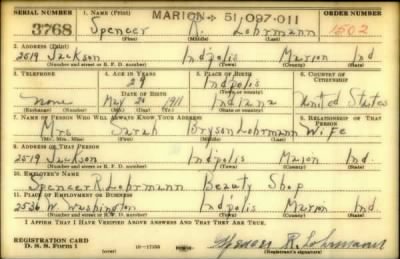 SERIAL NUMBER 1. NAME (Print) MARION 51,097-011 ORDER NUMBER
3768 Spencer R. Lohrmann 1502
(First) (Middle) (Last)
2. ADDRESS (Print)
2519 Jackson Ind'polis Marion Ind
(Number and street or R. F. D. number) (Town) (County) (State)
3. TELEPHONE 4. AGE IN YEARS 5. PLACE OF BIRTH 6. COUNTRY OF CITIZENSHIP
29 Ind'polis
DATE OF BIRTH (Town or county)
none May 1911 Indiana United States
(Exchange) (Number) (Mo.) (Day) (Yr.) (State or country)
7. NAME OF PERSON WHO WILL ALWAYS KNOW YOUR ADDRESS 8. RELATIONSHIP OF THAT PERSON
Mrs Sarah Bryson Lohrmann Wife
(Mr., Mrs., Miss) (First) (Middle) (Last)
9. ADDRESS OF THAT PERSON
2519 Jackson Ind'polis Marion Ind.
(Number and street or R. F. D. number) (Town) (County) (State)
10. EMPLOYER'S NAME
Spencer R Lohrmann Beauty Shop
11. PLACE OF EMPLOYMENT OR BUSINESS
2536 W. Washington Ind'polis Marion Ind.
(Number and street or R. F. D. number) (Town) (County) (State)
I AFFIRM THAT I HAVE VERIFIED ABOVE ANSWERS AND THAT THEY ARE TRUE.
REGISTRATION CARD
D. S. S. Form 1 16-17105 Spencer R. Lohrmann
(Registrant's signature)